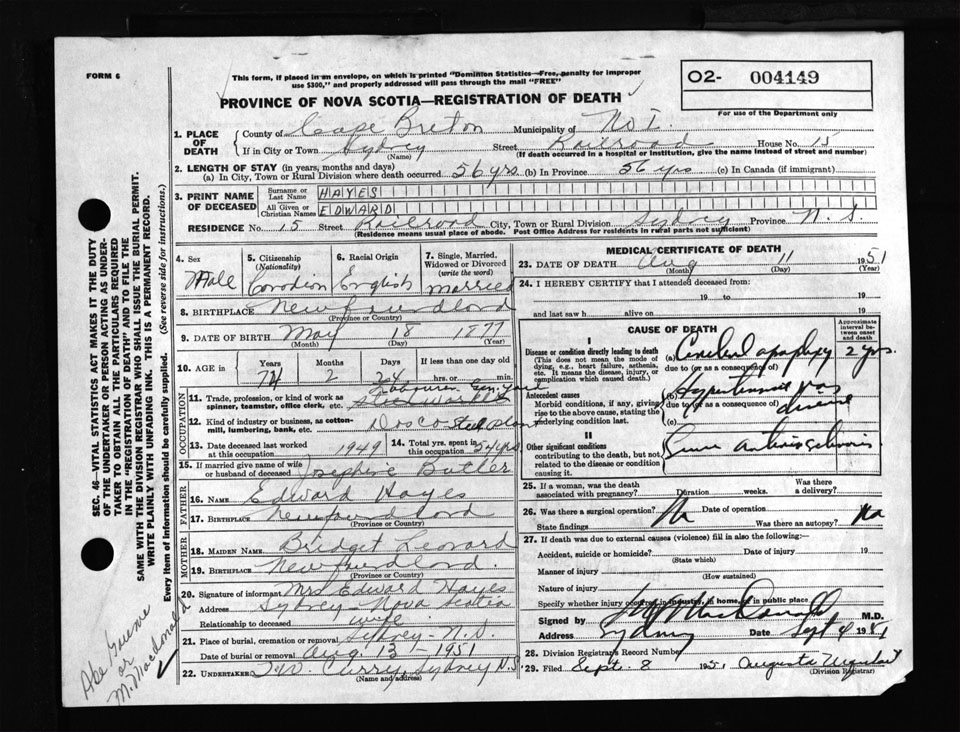 FORM 6
This form, if placed in an envelope, on which is printed "Dominion Statistics—Free, penalty for improper
use $300," and properly addressed will pass through the mail "FREE"
O2- 004149
For use of the Department only
PROVINCE OF NOVA SCOTIA—REGISTRATION OF DEATH
1. PLACE OF DEATH
County of Cape Breton Municipality of No 1.
If in City or Town Sydney Street Railroad House No. 15
(Name) (If death occurred in a hospital or institution, give the name instead of street and number)
2. LENGTH OF STAY (in years, months and days)
(a) In City, Town or Rural Division where death occurred. 56 yrs. (b) In Province 56 yrs (c) In Canada (if immigrant)
3. PRINT NAME OF DECEASED
Surname or Last Name HAYES
All Given or Christian Names EDWARD
RESIDENCE No. 15 Street Railroad City, Town or Rural Division Sydney Province N. S.
(Residence means usual place of abode. Post Office Address for residents in rural parts not sufficient)
4. Sex Male
5. Citizenship (Nationality) Canadian
6. Racial Origin English
7. Single, Married, Widowed or Divorced (write the word) Married
8. BIRTHPLACE Newfoundland
(Province or Country)
9. DATE OF BIRTH May 18 1877
(Month) (Day) (Year)
10. AGE Years 74 Months 2 Days 24 If less than one day old hrs. or min.
OCCUPATION
11. Trade, profession, or kind of work as spinner, teamster, office clerk, etc. Labourer Gen. Yard
Steelworker
12. Kind of industry or business, as cotton-mill, lumbering, bank, etc. Dosco Steel plant
13. Date deceased last worked at this occupation 1949
14. Total yrs. spent in this occupation 54 yrs
15. If married give name of wife or husband of deceased Josephine Butler
FATHER
16. NAME Edward Hayes
17. BIRTHPLACE Newfoundland
(Province or Country)
MOTHER
18. MAIDEN NAME Bridget Leonard
19. BIRTHPLACE Newfoundland.
(Province or Country)
20. Signature of informant Mrs Edward Hayes
Address Sydney - Nova Scotia
Relationship to deceased wife
21. Place of burial, cremation or removal Sydney - N.S.
Date of burial or removal Aug. 13 - 1951
22. UNDERTAKER T. W. Curry, Sydney N.S.
(Name and address)
MEDICAL CERTIFICATE OF DEATH
23. DATE OF DEATH Aug 11 1951
(Month) (Day) (Year)
24. I HEREBY CERTIFY that I attended deceased from:
19 to 19
and last saw h alive on 19
CAUSE OF DEATH
Approximate interval between onset and death
I
Disease or condition directly leading to death
(This does not mean the mode of dying, e.g., heart failure, asthenia, etc. It means the disease, injury, or complication which caused death.)
(a) Cerebral apoplexy 2 yrs.
due to (or as a consequence of)
Antecedent causes
Morbid conditions, if any, giving rise to the above cause, stating the underlying condition last.
(b) Hypertensive vas
due to (or as a consequence of)
(c) disease
II
Other significant conditions
contributing to the death, but not related to the disease or condition causing it.
arteriosclerosis
25. If a woman, was the death associated with pregnancy? Duration weeks. Was there a delivery?
26. Was there a surgical operation? No Date of operation 19
State findings Was there an autopsy? No
27. If death was due to external causes (violence) fill in also the following:
Accident, suicide or homicide? Date of injury 19
(State which)
Manner of injury
(How sustained)
Nature of injury
Specify whether injury occurred in industry, in home, or in public place
Signed by MacDonald M.D.
Address Sydney Date Sept 4 1951
28. Division Registrar's Record Number
29. Filed Sept. 8 1951 Augusta Urquhart
(Division Registrar)
SEC. 46—VITAL STATISTICS ACT MAKES IT THE DUTY
OF THE UNDERTAKER OR PERSON ACTING AS UNDER-
TAKER TO OBTAIN ALL THE PARTICULARS REQUIRED
IN THE "REGISTRATION OF DEATH" AND TO FILE THE
SAME WITH THE DIVISION REGISTRAR WHO SHALL ISSUE THE BURIAL PERMIT.
WRITE PLAINLY WITH UNFADING INK. THIS IS A PERMANENT RECORD.
Every item of information should be carefully supplied. (See reverse side for instructions.)
or
M. Macdonald